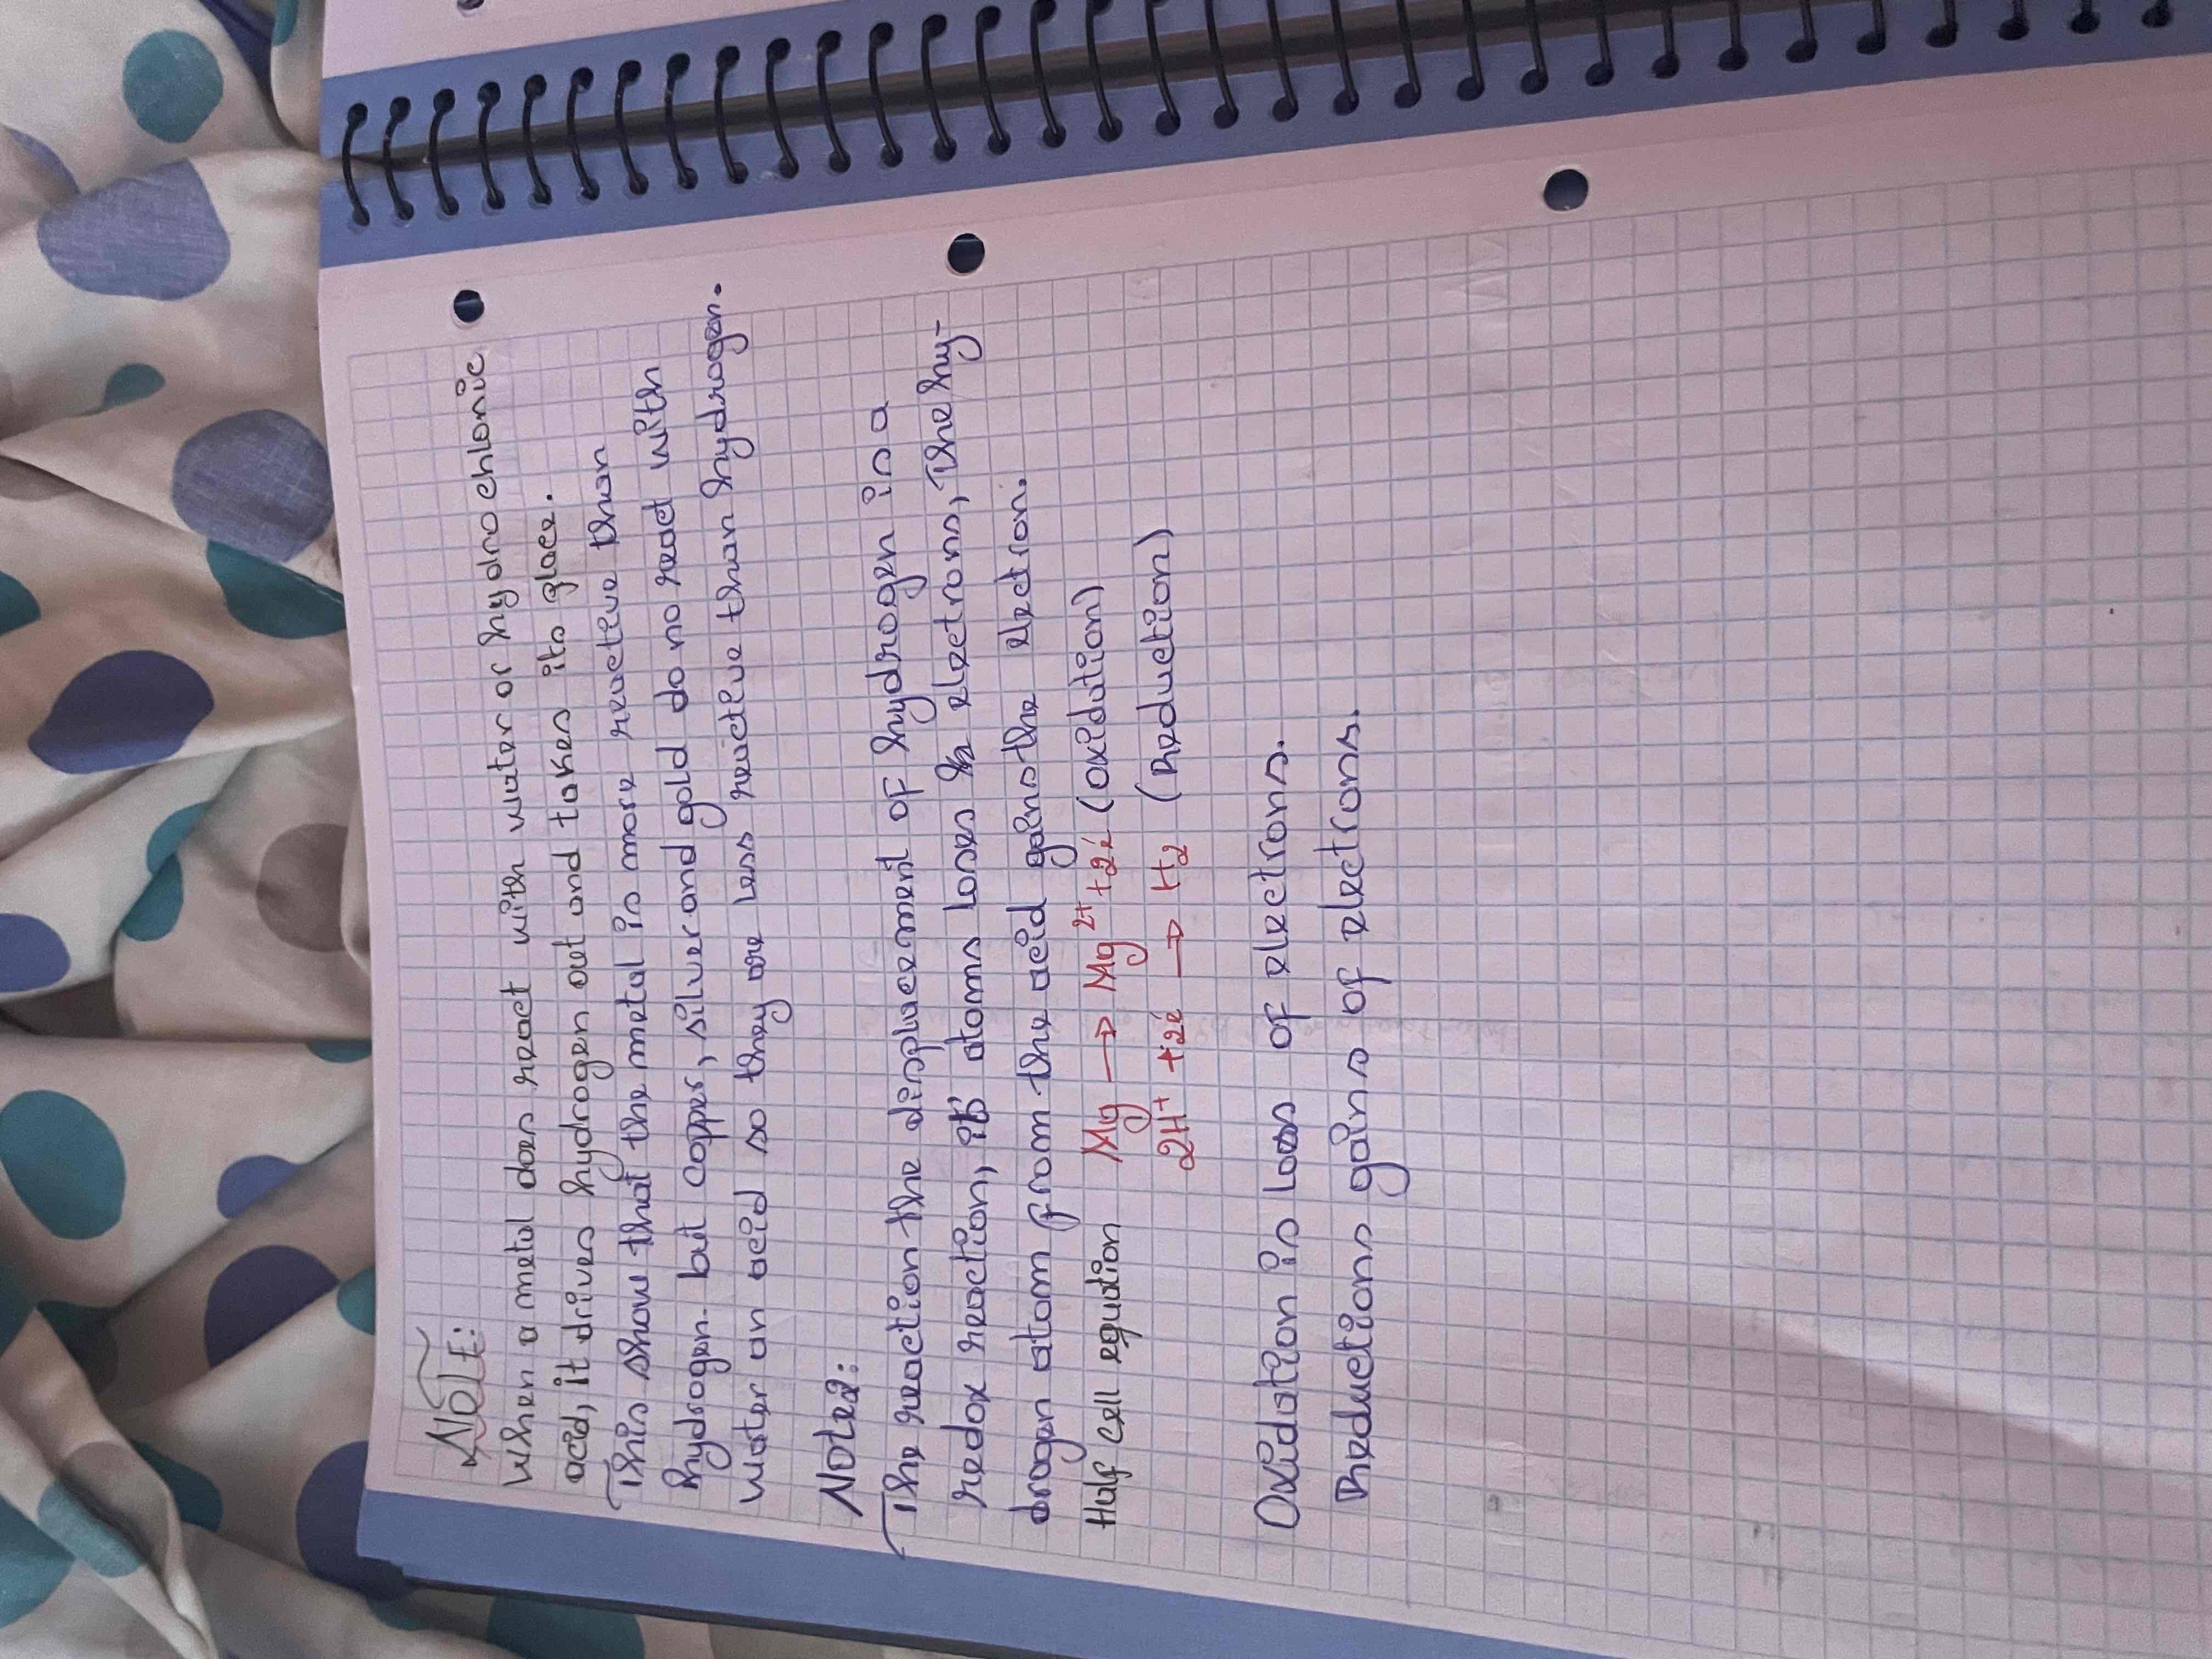 NOTE:
When a metal does react with water or hydrochloric
acid, it drives hydrogen out and takes its place.
This show that the metal is more reactive than
hydrogen. but copper, silver and gold do no react with
water an acid so they are less reactive than hydrogen.
Note2:
The reaction the displacement of hydrogen is a
redox reaction, it's atoms loses electrons, the hy-
drogen atom from the acid gains the electron.
Half cell equation Mg → Mg²⁺ +2é (oxidation)
2H⁺ +2é → H₂ (Reduction)
Oxidation is loss of electrons.
Reductions gains of electrons.